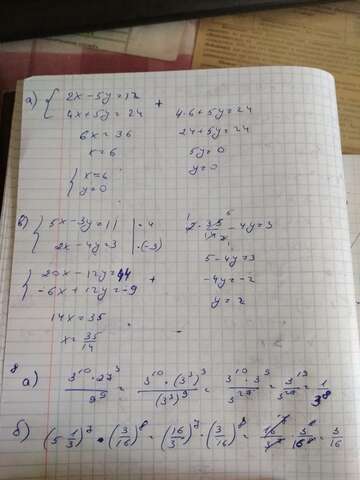 а) { 2x - 5y = 12 +
4x + 5y = 24
6x = 36
x = 6
{ x = 6
y = 0
4·6 + 5y = 24
24 + 5y = 24
5y = 0
y = 0
в) { 5x - 3y = 11 | ·4
2x - 4y = 3 | ·(-3)
{ 20x - 12y = 44 +
-6x + 12y = -9
14x = 35
x = 35/14
2 · 35/14 - 4y = 3
5 - 4y = 3
-4y = -2
y = 2
8 а) 3^10 · 27^3 / 9^9 = 3^10 · (3^3)^3 / (3^2)^9 = 3^10 · 3^9 / 3^27 = 3^19 / 3^27 = 1 / 3^8
б) (5 1/3)^7 · (3/16)^8 = (16/3)^7 · (3/16)^8 = 16^7 / 3^7 · 3^8 / 16^8 = 3/16